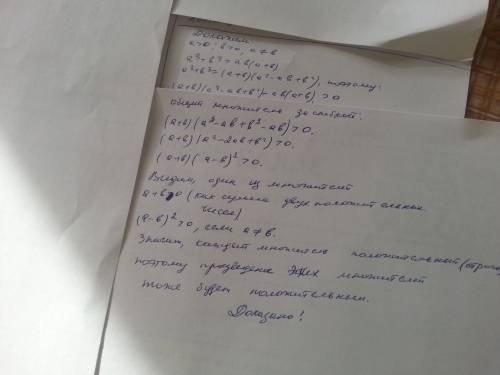 Доказать:
a>0; b>0, a≠b
a³+b³>ab(a+b)
a³+b³=(a+b)(a²-ab+b²), поэтому:
(a+b)(a²-ab+b²)-ab(a+b)>0
общий множитель за скобкой:
(a+b)(a²-ab+b²-ab)>0.
(a+b)(a²-2ab+b²)>0.
(a+b)(a-b)²>0.
Видим, один из множителей
a+b>0 (как сумма двух положительных
чисел)
(a-b)²>0, если a≠b.
Значит, множитель положительный
поэтому произведение этих множителей
тоже будет положительным.
Доказано!